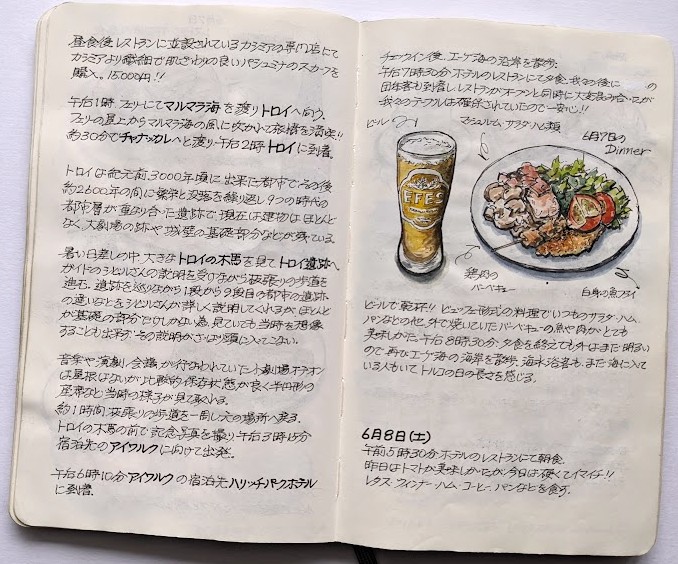 昼食後レストランに並設されているカラミアの専門店にて
カラミアより繊細で肌ざわりの良いパシュミナのスカーフを
購入。15,000円!!
午后1時、フェリーにてマルマラ海を渡りトロイへ向う。
フェリーの屋上からマルマラ海の風に吹かれて旅情を満喫!!
約30分でチャナッカレへと渡り午后2時トロイに到着。
トロイは紀元前3,000年頃に出来た都市でその後
約2600年の間に繁栄と没落を繰り返し9つの時代の
都市層が重なり合った遺跡で、現在は建物はほとんど
なく、大劇場の跡や城壁の基礎部分などが残っている
暑い日差しの中、大きなトロイの木馬を見てトロイ遺跡へ
ガイドの さんの説明を受けながら板張りの歩道を
進む。遺跡を巡りながら1層から9層目の都市の遺跡
の違いなどを さんが詳しく説明してくれるがほとんど
が基礎の部分だけしかない為、見ていても当時を想像
することも出来ずその説明がさっぱり頭に入ってこない。
音楽や演劇、会議が行なわれていた小劇場オデオン
は屋根はないが比較的保存状態が良く半円形の
座席など当時の様子が見て取れる。
約1時間、板張りの歩道を一周し元の場所へ戻る。
トロイの木馬の前で記念写真を撮り午后3時15分
宿泊先のアイワルクに向けて出発。
午后6時10分アイワルクの宿泊先ハリッチパークホテル
に到着。
チェックイン後、エーゲ海の沿岸を散歩。
午后7時30分ホテルのレストランにて夕食、我々の後に の
団体客も到着しレストランがオープンと同時に大変混み合ったが
我々のテーブルは確保されていたので一安心!!
ビール
マッシュルーム、サラダ、ハム類
6月7日の
Dinner
EFES
鶏肉の
バーベキュー
白身の魚フライ
ビールで乾杯!! ビュッフェ形式の料理でいつものサラダ、ハム、
パンなどの他、外で焼いていたバーベキューの魚や肉がとても
美味しかった。午后8時30分、夕食を終えても外はまだ明るい
ので再びエーゲ海の海岸を散歩、海水浴客も、まだ海に入って
いる人もいてトルコの日の長さを感じる。
6月8日(土)
午前5時30分ホテルのレストランにて朝食。
昨日はトマトが美味しかったが今日は硬くてイマイチ!!
レタス、ウィンナー、ハム、コーヒー、パンなどを食す。